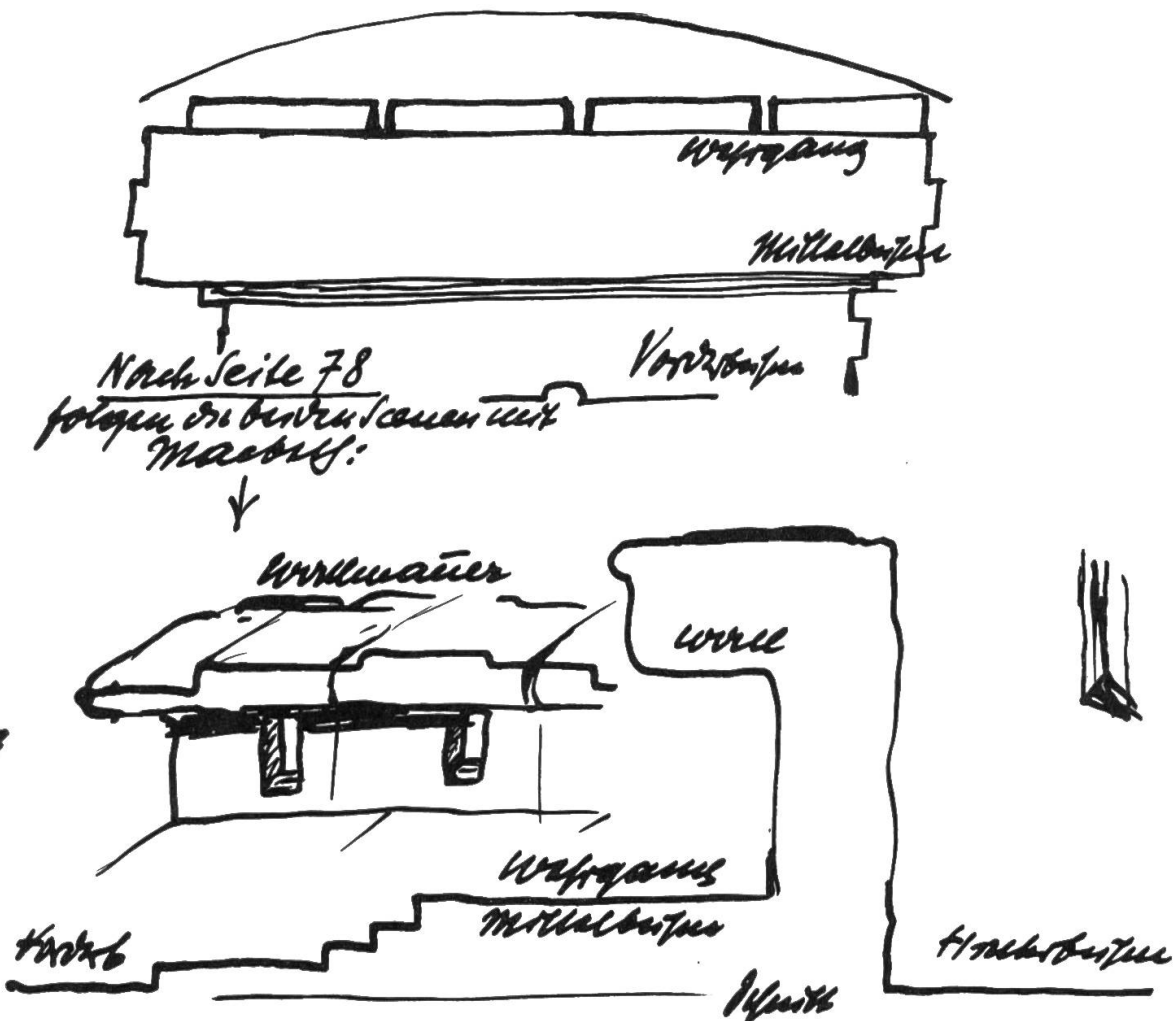 Wehrgang
Mittelbühne
Vorderbühne
Nach Seite 78
folgen die beiden Scenen mit
Macbeth:
Wallmauer
Wall
Wehrgang
Mittelbühne
Vorderb
Hinterbühne
Schnitt